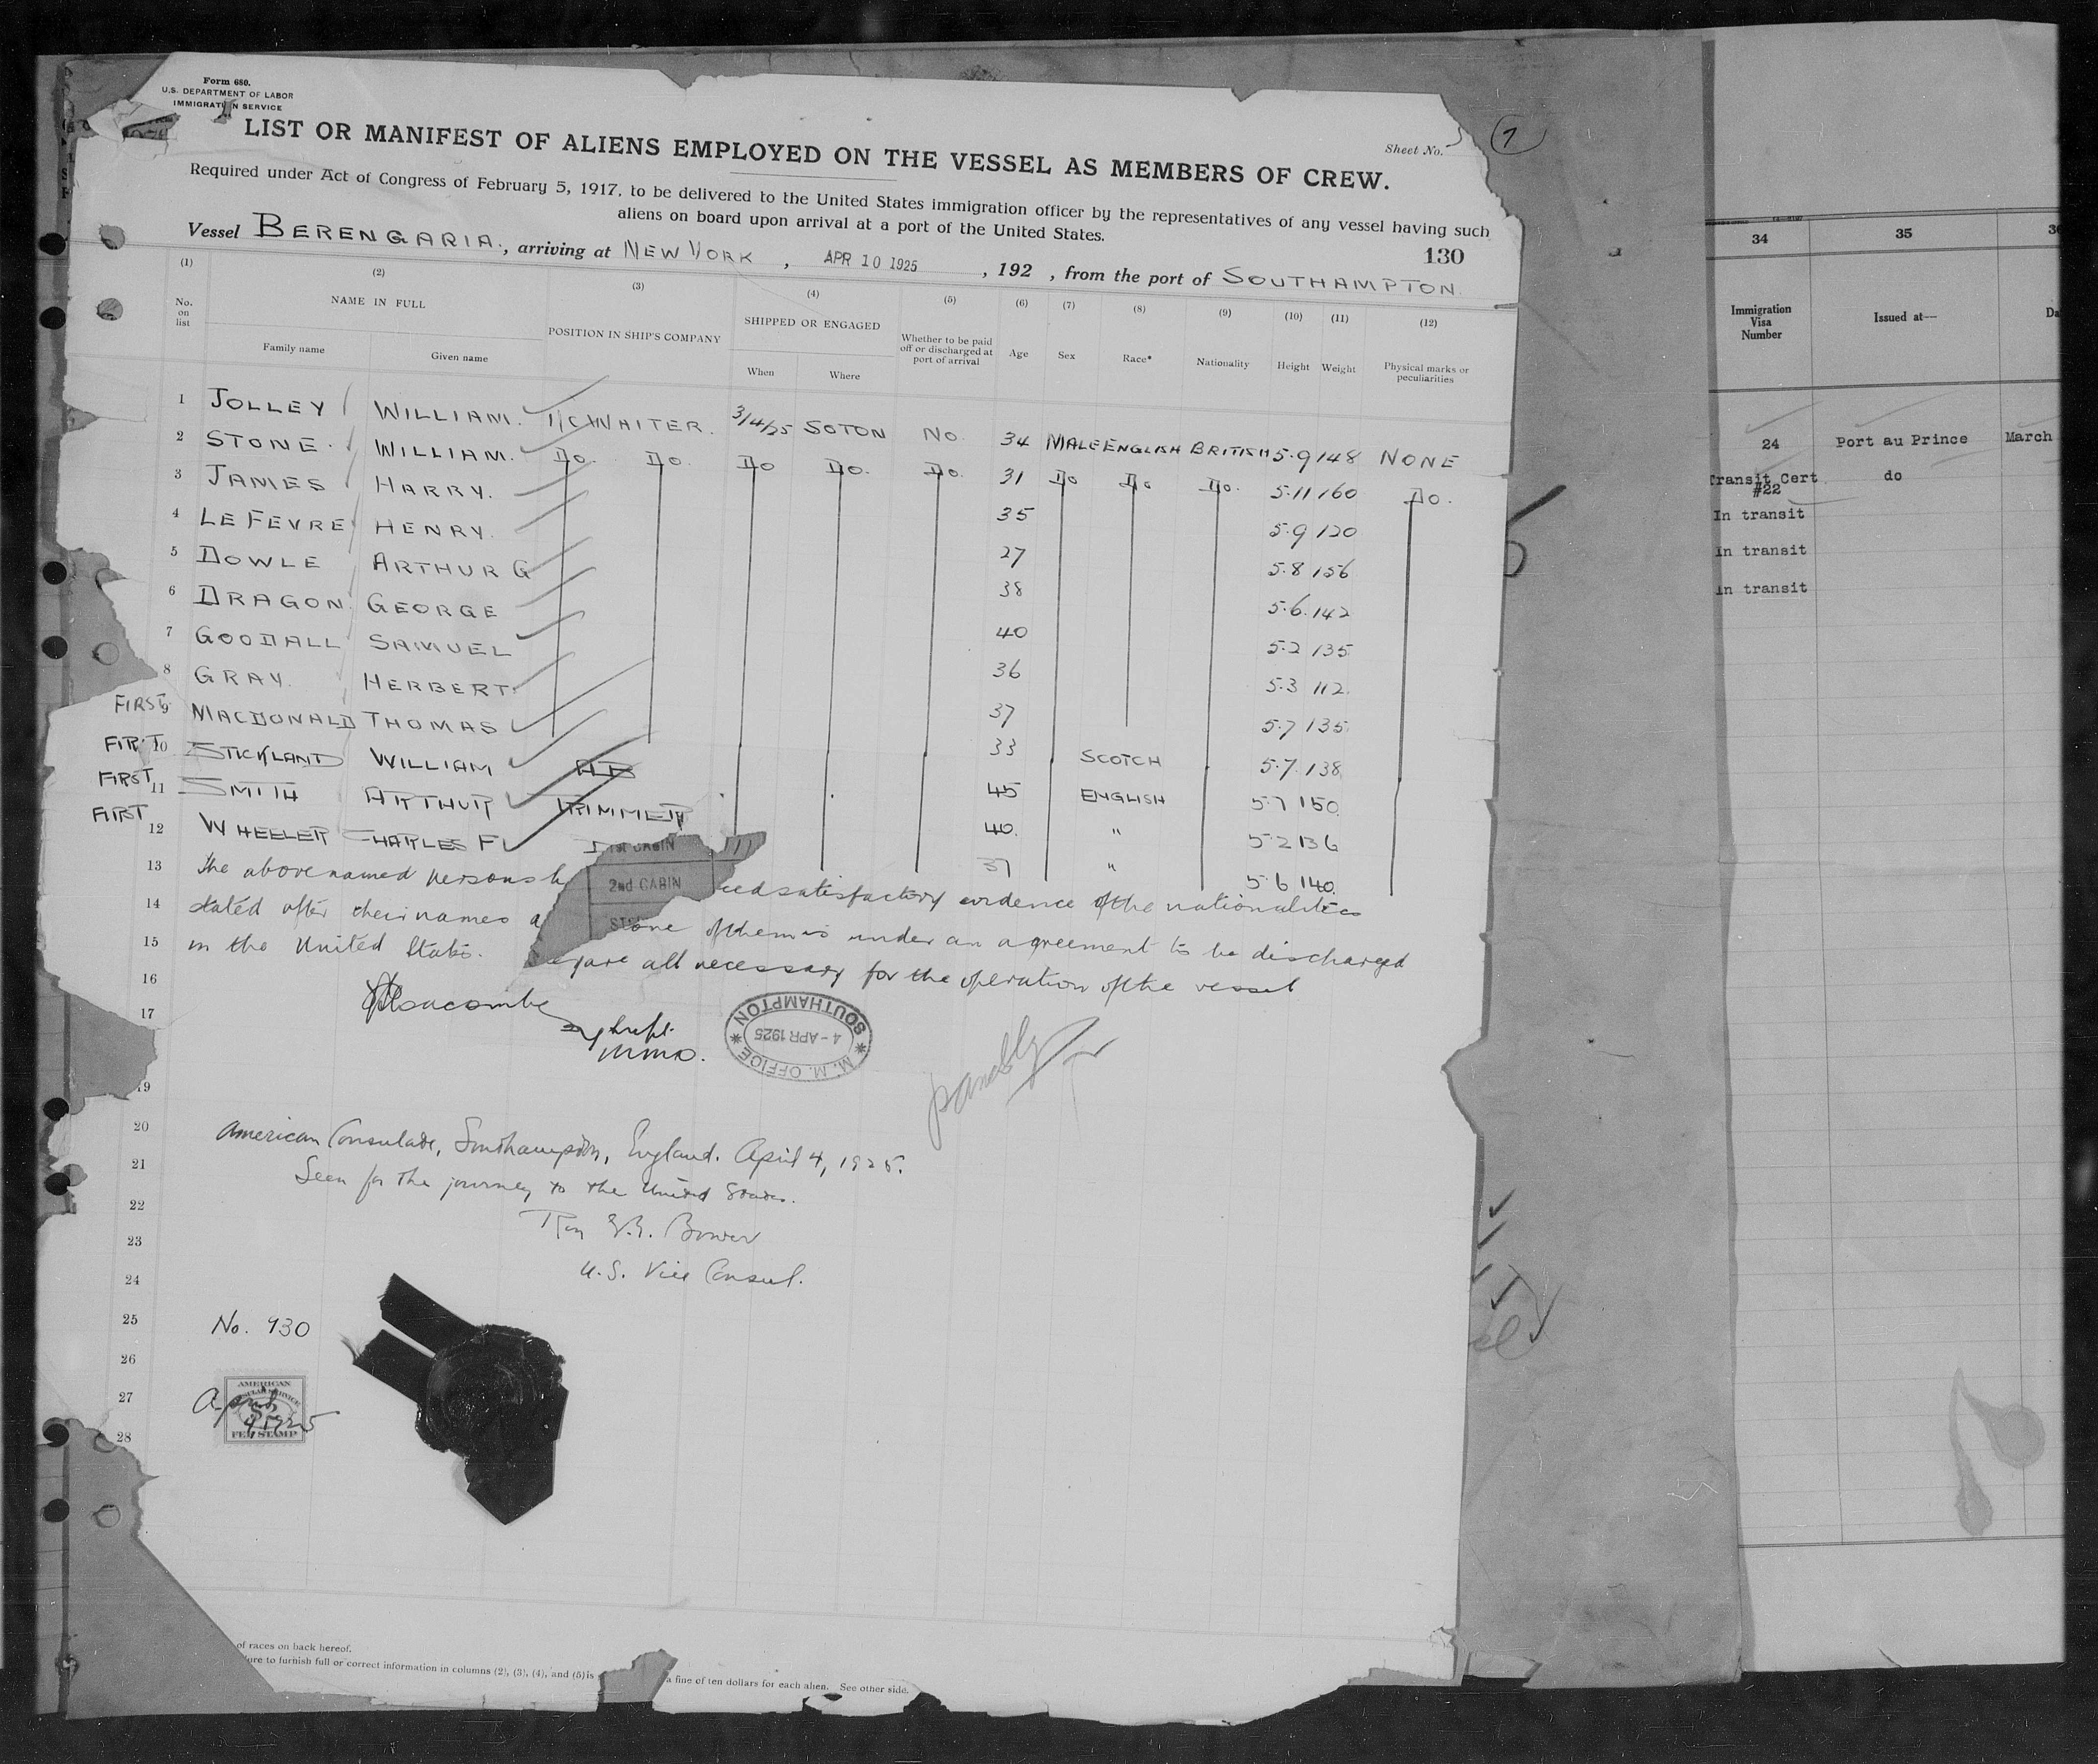 Form 680.
U.S. DEPARTMENT OF LABOR
IMMIGRATION SERVICE
Sheet No. 7
LIST OR MANIFEST OF ALIENS EMPLOYED ON THE VESSEL AS MEMBERS OF CREW.
Required under Act of Congress of February 5, 1917, to be delivered to the United States immigration officer by the representatives of any vessel having such
aliens on board upon arrival at a port of the United States.
130
Vessel BERENGARIA., arriving at NEW YORK, APR 10 1925, 192 , from the port of SOUTHAMPTON
(1) (2) (3) (4) (5) (6) (7) (8) (9) (10) (11) (12)
No. on list NAME IN FULL POSITION IN SHIP'S COMPANY SHIPPED OR ENGAGED Whether to be paid off or discharged at port of arrival Age Sex Race* Nationality Height Weight Physical marks or peculiarities
Family name Given name When Where
1 JOLLEY WILLIAM. 1/C WAITER. 3/4/25 SOTON NO. 34 MALE ENGLISH BRITISH 5.9 148 NONE
2 STONE. WILLIAM. Do. Do. Do Do. Do. 31 Do Do Do. 5.11 160 Do.
3 JAMES HARRY. 35 5.9 120
4 LE FEVRE HENRY. 27 5.8 156
5 DOWLE ARTHUR G 38 5.6. 142
6 DRAGON. GEORGE 40 5.2 135
7 GOODALL SAMUEL 36 5.3 112.
8 GRAY. HERBERT. 37 5.7 135.
FIRST 9 MACDONALD THOMAS 33 SCOTCH 5.7. 138
FIRST 10 STICKLAND WILLIAM AB 45 ENGLISH 5.7 150
FIRST 11 SMITH ARTHUR TRIMMER 40. " 5.2 136
FIRST 12 WHEELER CHARLES F 37 " 5.6 140.
1st CABIN
2nd CABIN
13 The above named persons satisfactory evidence of the nationalities
14 stated after their names of them is under an agreement to be discharged
15 in the United States. are all necessary for the operation of the vessel
16
17
M. M. OFFICE
4 - APR 1925
SOUTHAMPTON
19
20 American Consulate, Southampton, England. April 4, 1925.
21 Seen for the journey to the United States.
22
23 Bower
24 U.S. Vice Consul.
25 No. 930
26
27 AMERICAN CONSULAR SERVICE
April 4 1925
FEE STAMP
28
of races on back hereof.
ure to furnish full or correct information in columns (2), (3), (4), and (5) is a fine of ten dollars for each alien. See other side.
34 35 36
Immigration Visa Number Issued at— Da
24 Port au Prince March
Transit Cert #22 do
In transit
In transit
In transit